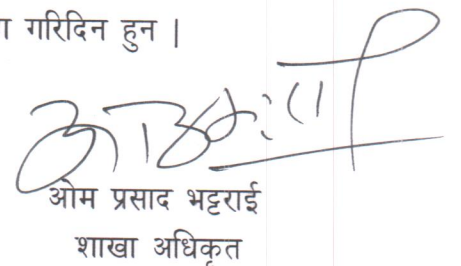 ा गरिदिन हुन ।
ओम प्रसाद भट्टराई
शाखा अधिकृत